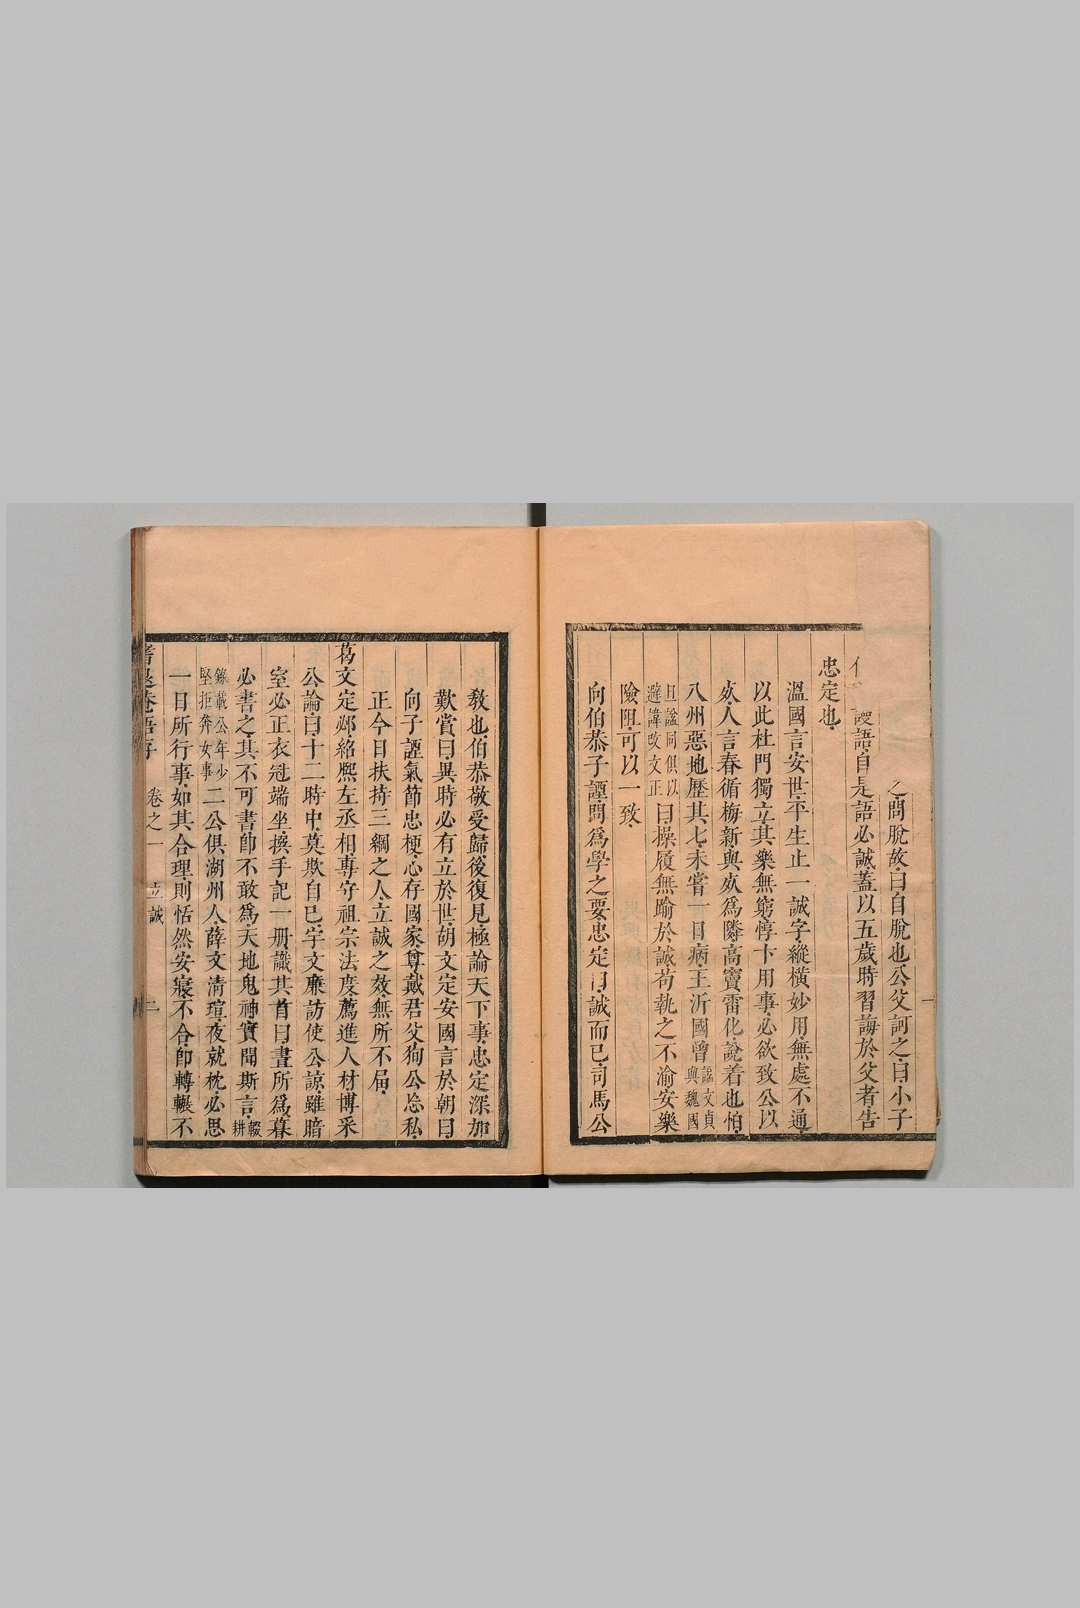 之問脫故曰自脫也公父訶之曰小子
謾語自是語必誠蓋以五歲時習誨於父者告
忠定也
溫國言安世平生止一誠字縱橫妙用無處不通
以此杜門獨立其樂無窮惇卞用事必欲致公以
死人言春循梅新與死爲隣高竇雷化說着也怕
八州惡地歷其七未嘗一日病王沂國曾諡文貞與魏國
且諡同俱以避諱改文正曰操履無踰於誠苟執之不渝安樂
險阻可以一致
向伯恭子諲問爲學之要忠定曰誠而已司馬公
教也伯恭敬受歸後復見極論天下事忠定深加
歎賞曰異時必有立於世胡文定安國言於朝曰
向子諲氣節忠梗心存國家尊戴君父狥公忘私
正今日扶持三綱之人立誠之效無所不屆
葛文定邲紹熙左丞相專守祖宗法度薦進人材博采
公論曰十二時中莫欺自己宇文廉訪使公諒雖暗
室必正衣冠端坐㨿手記一册識其首曰晝所爲暮
必書之其不可書卽不敢爲天地鬼神實聞斯言輟耕
錄載公年少堅拒奔女事二公俱湖州人薛文清瑄夜就枕必思
一日所行事如其合理則恬然安寢不合卽轉輾不
耆退菴語存 卷之一 立誠 二